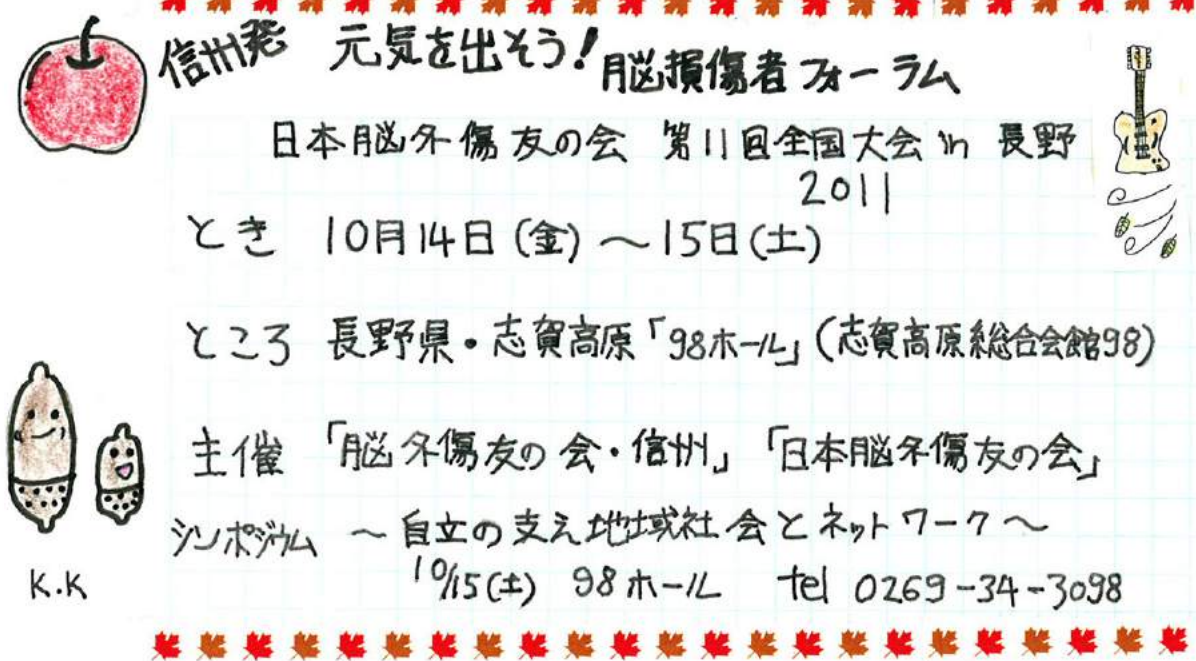 信州発 元気を出そう!脳損傷者フォーラム
日本脳外傷友の会 第11回全国大会 in 長野
2011
とき 10月14日(金)~15日(土)
ところ 長野県・志賀高原「98ホール」(志賀高原総合会館98)
主催 「脳外傷友の会・信州」「日本脳外傷友の会」
シンポジウム ~自立の支え地域社会とネットワーク~
10/15(土) 98ホール tel 0269-34-3098
K.K